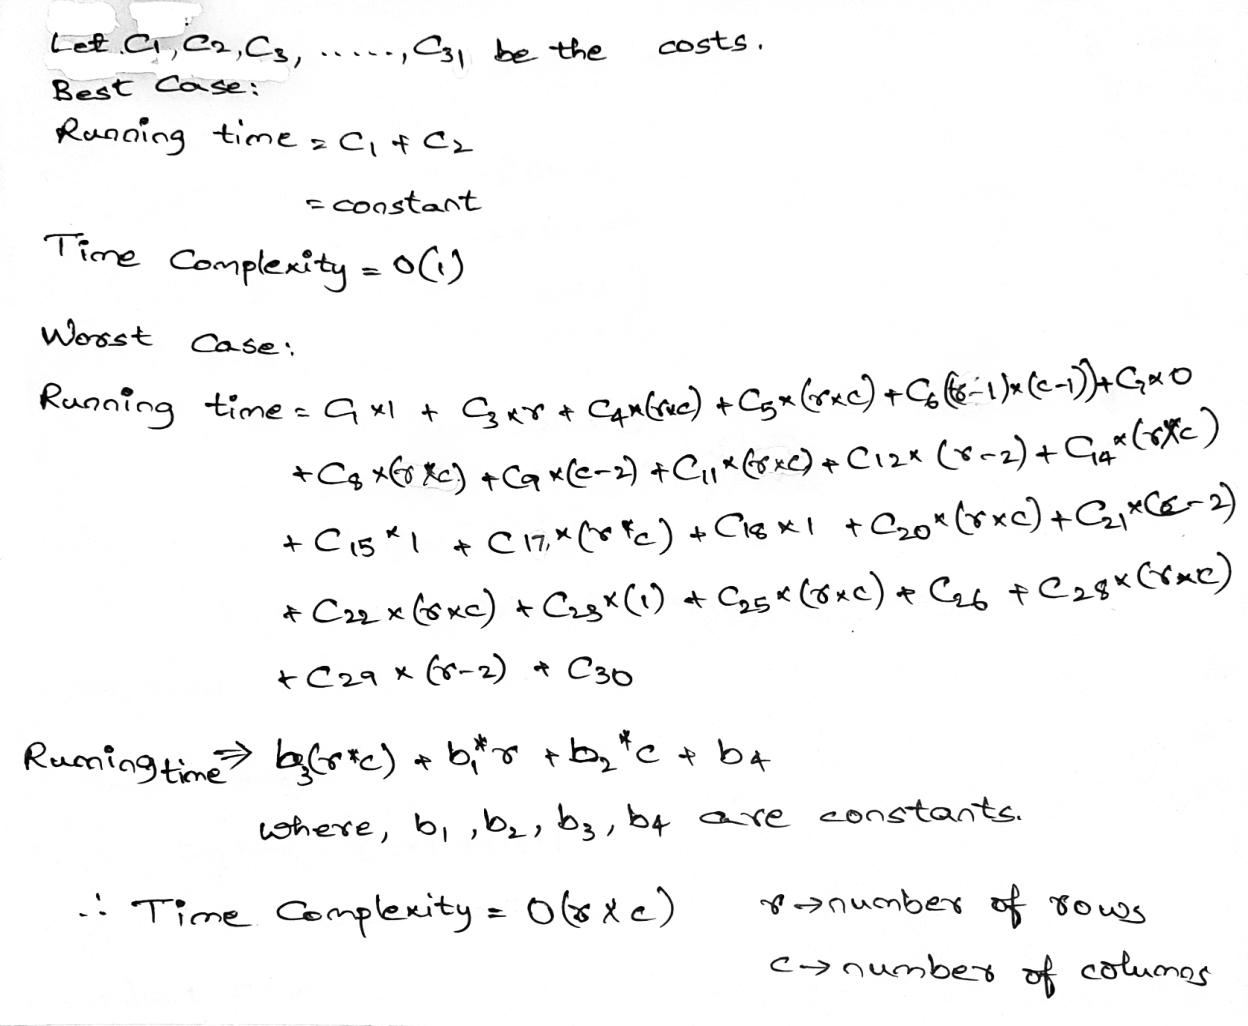 Let C1, C2, C3, ....., C31 be the costs.
Best Case:
Running time = C1 + C2
= constant
Time Complexity = O(1)
Worst Case:
Running time = C1 x1 + C3 x r + C4 x (rxc) + C5 x (rxc) + C6 ((r-1) x (c-1)) + C7 x 0
+ C8 x (r x c) + C9 x (c-2) + C11 x (r x c) + C12 x (r-2) + C14 x (r x c)
+ C15 * 1 + C17 x (r * c) + C18 x 1 + C20 x (r x c) + C21 x (c-2)
+ C22 x (r x c) + C23 x (1) + C25 x (r x c) + C26 + C28 x (r x c)
+ C29 x (r-2) + C30
Running time ⇒ b3(r*c) + b1*r + b2*c + b4
where, b1, b2, b3, b4 are constants.
∴ Time Complexity = O(r x c) r → number of rows
c → number of columns